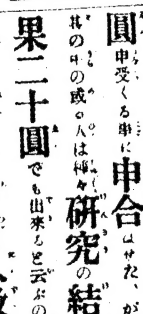 圓申受くる事に申合はせた、が
其の中の或る人は種々研究の結
果二十圓でも出來ると云ふの